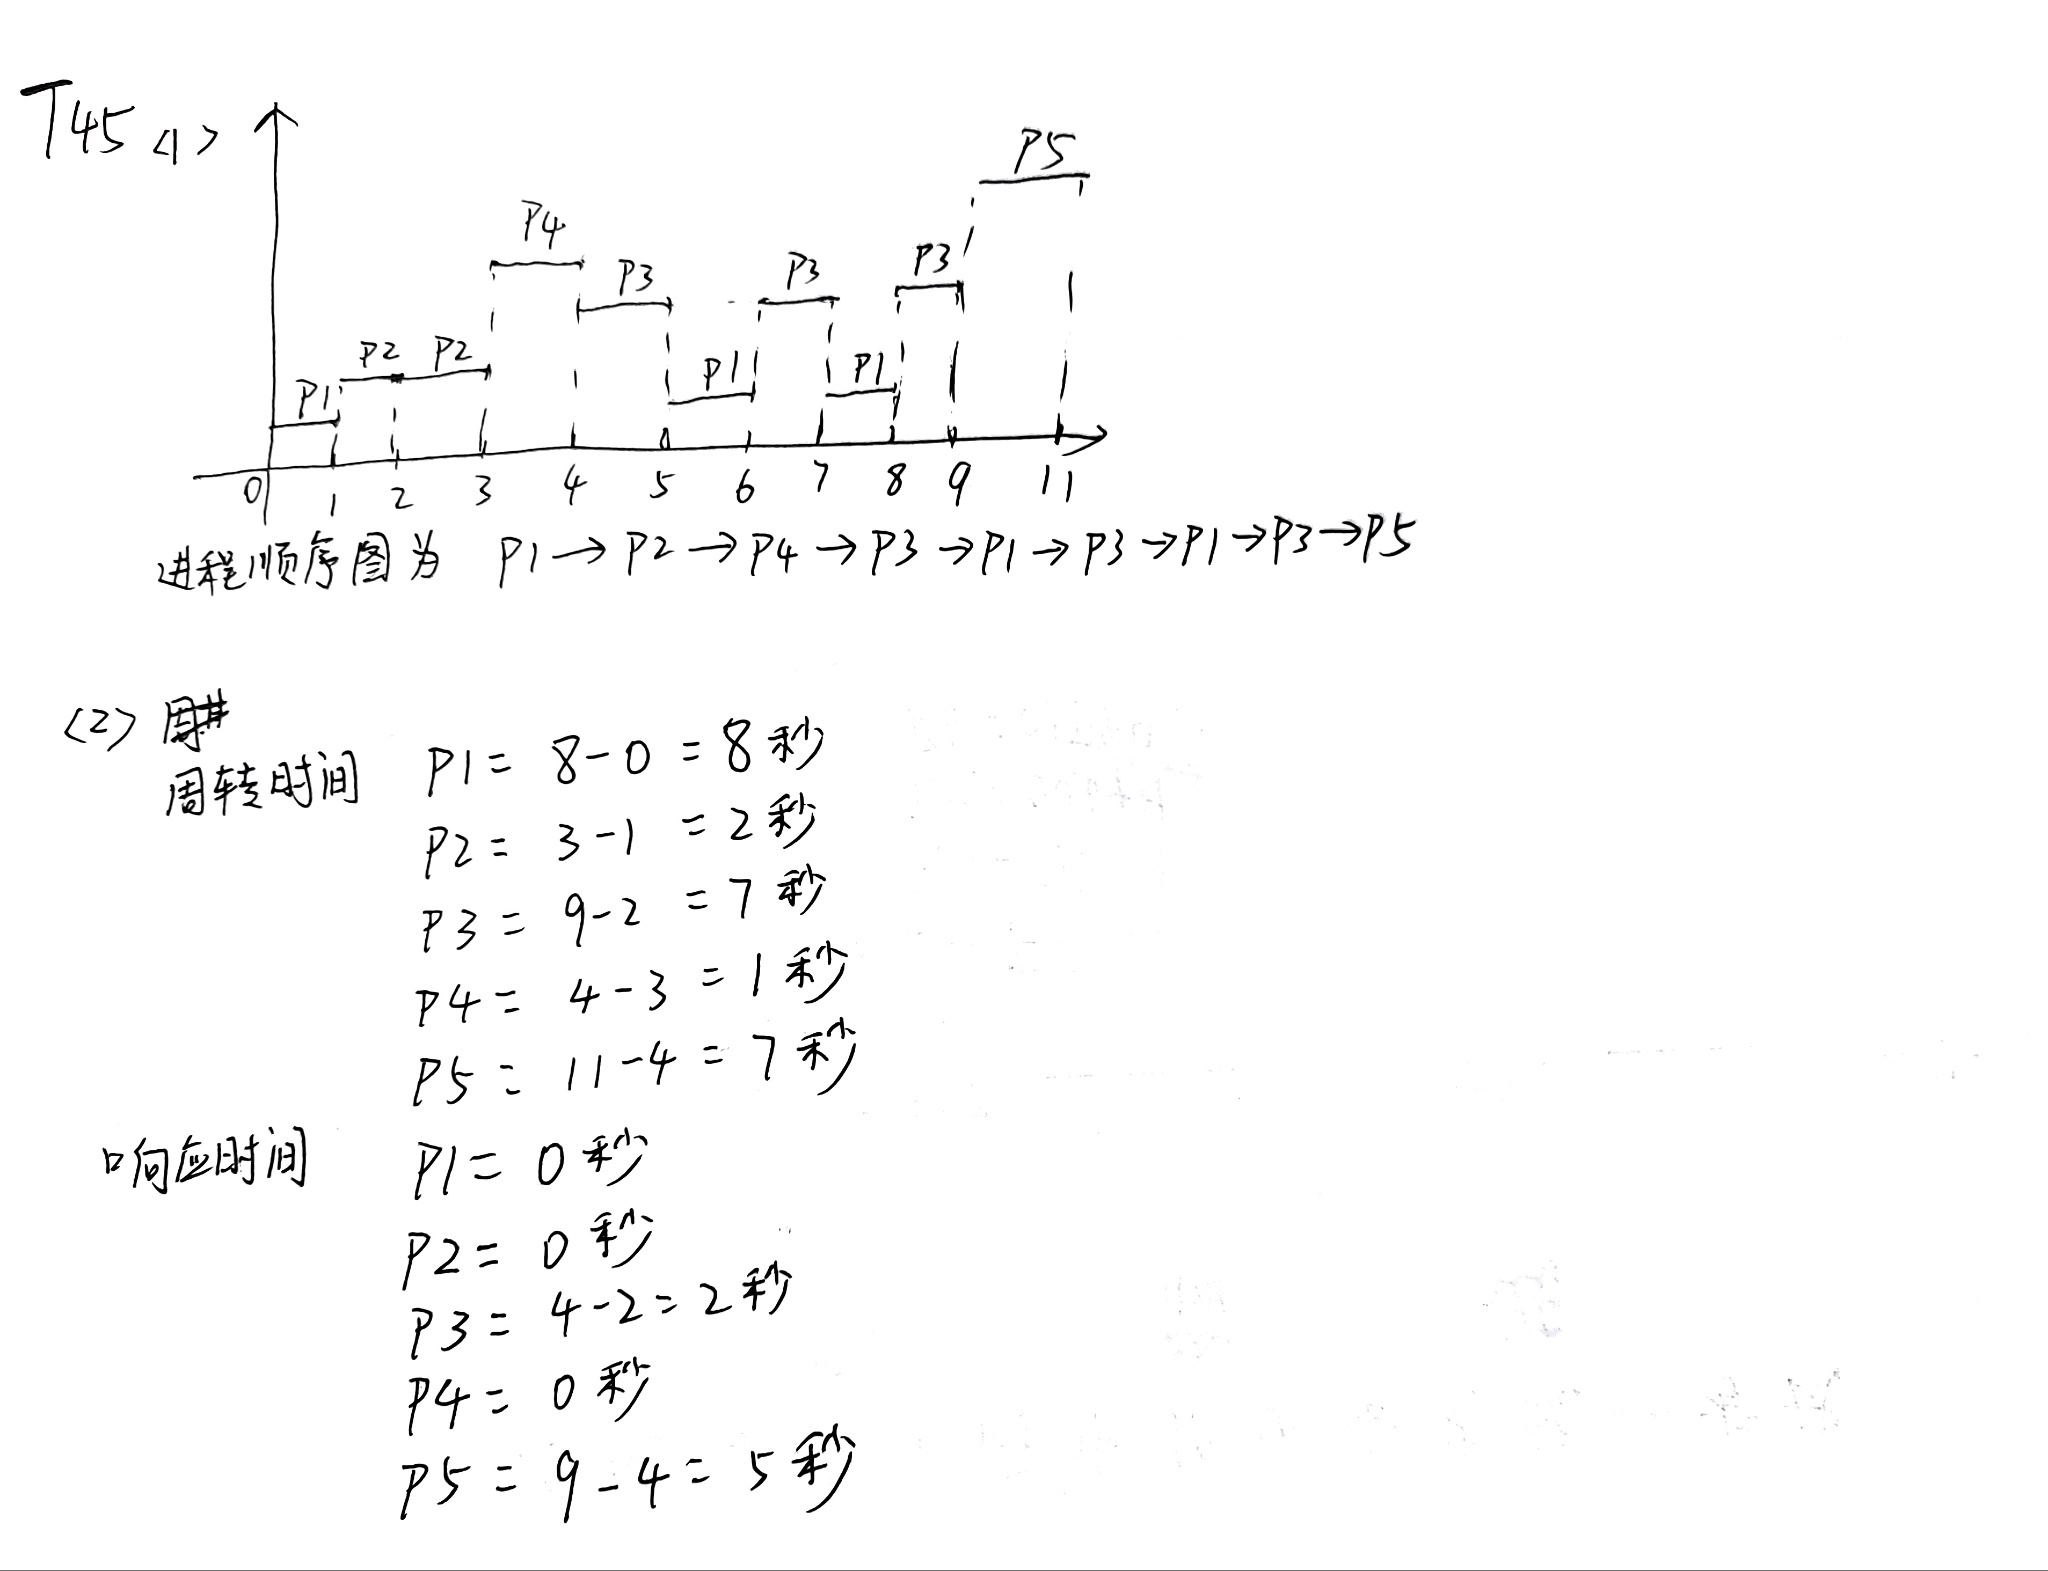 T45 <1>
P5
P4
P3 P3 P3
P2 P2
P1 P1 P1
0 1 2 3 4 5 6 7 8 9 11
进程顺序图为 P1→P2→P4→P3→P1→P3→P1→P3→P5
<2> 周
周转时间 P1= 8-0=8秒
P2= 3-1=2秒
P3= 9-2=7秒
P4= 4-3=1秒
P5= 11-4=7秒
响应时间 P1=0秒
P2=0秒
P3=4-2=2秒
P4=0秒
P5=9-4=5秒